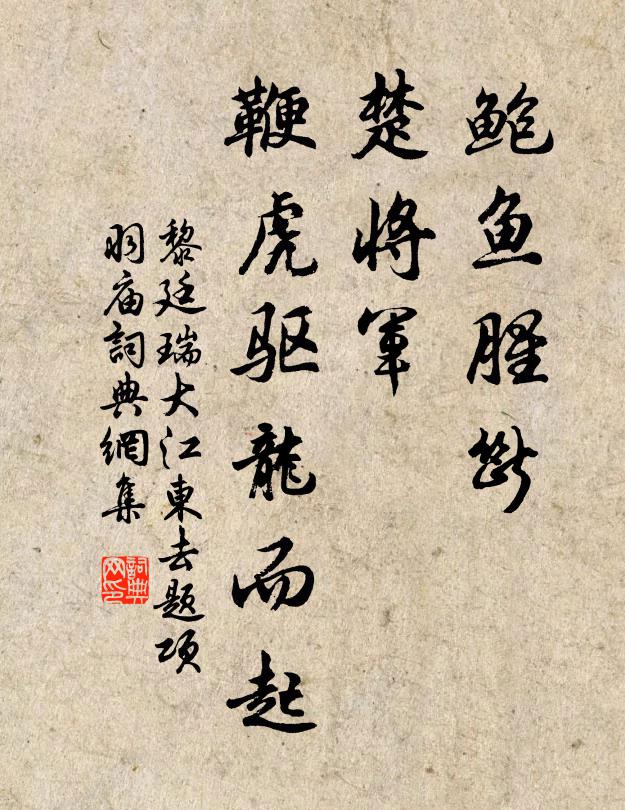 鲍鱼腥断
楚將軍
鞭虎驱龍而起
黎廷瑞大江東去题项
羽庙詞典網集
詞典网印